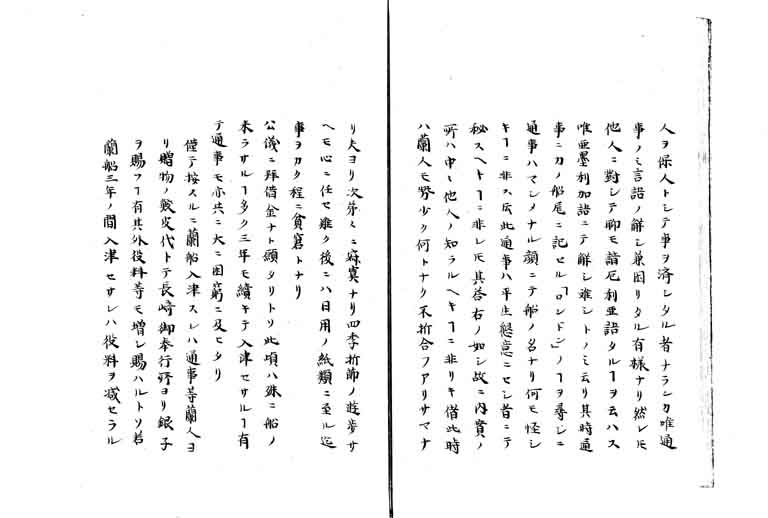 人ヲ保人トシテ事ヲ済シタル者ナランカ唯通
事ノミ言語ノ解シ兼困リタル有様ナリ然レ𪜈
他人ニ對シテ聊モ諳厄利亜語タルヿヲ云ハス
唯亜墨利加語ニテ解シ難シトノミ云リ其時通
事ニカノ船尾ニ記セル「ロンドン」ノヿヲ尋シニ
通事ハマジメナル顔ニテ船ノ名ナリ何モ怪シ
キヿニ非ス云此通事ハ平生懇意ニセシ者ニテ
秘スヘキヿニ非レ𪜈其答右ノ如シ故ニ内實ノ
所ハ中々他人ノ知ラルヘキヿニ非リキ偖此時
ハ蘭人モ勢少ク何トナク不折合ノアリサマナ
リ夫ヨリ次第々ニ寂寞ナリ四季折節ノ遊歩サ
ヘモ心ニ任セ難ク後ニハ日用ノ紙類ニ至ル迄
事ヲカク程ニ貧窮トナリ
公儀ニ拜借金ナト願タリトソ此頃ハ殊ニ船ノ
来ラサルヿ多ク三年モ續キテ入津セサルヿ有
テ通事モ亦共ニ大ニ困窮ニ及ヒタリ
僅テ按スルニ蘭船入津スレハ通事等蘭人ヨ
リ贈物ノ皮代トテ長崎御奉行所ヨリ銀子
ヲ賜フヿ有其外役料等モ増シ賜ハルトソ若
蘭船三年ノ間入津セサレハ役料ヲ減セラル